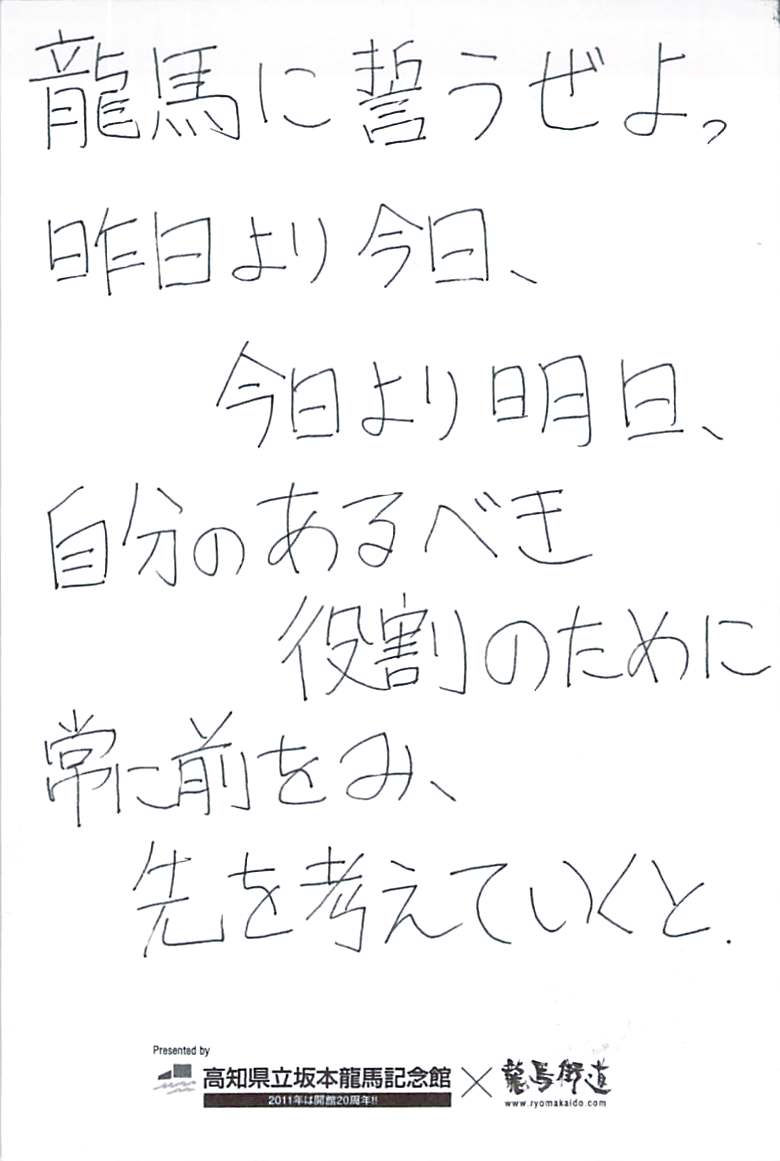 龍馬に誓うぜよっ
昨日より今日、
今日より明日、
自分のあるべき
役割のために
常に前をみ、
先を考えていくと.
Presented by
高知県立坂本龍馬記念館
2011年は開館20周年!!
×
龍馬街道
www.ryomakaido.com